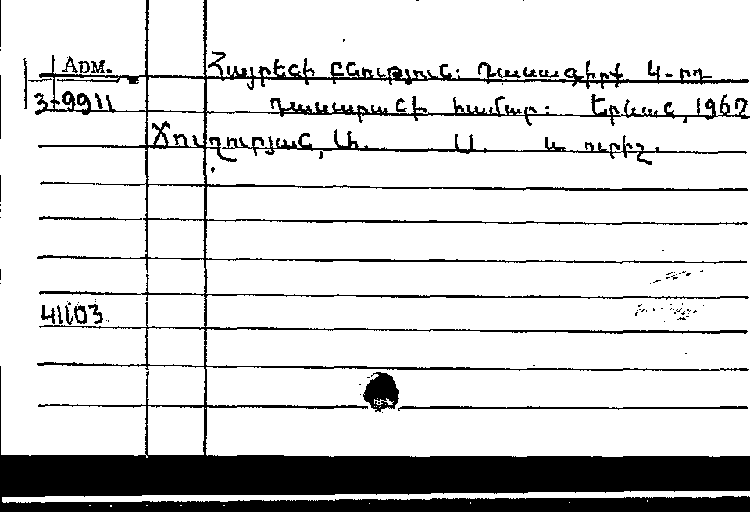 Арм.
Հայրենի բնություն: Դասագիրք 4-րդ
3-9911
դասարանի համար: Երևան, 1967
Ճուղուրյան, Ա. Ա. և ուրիշ.
41103